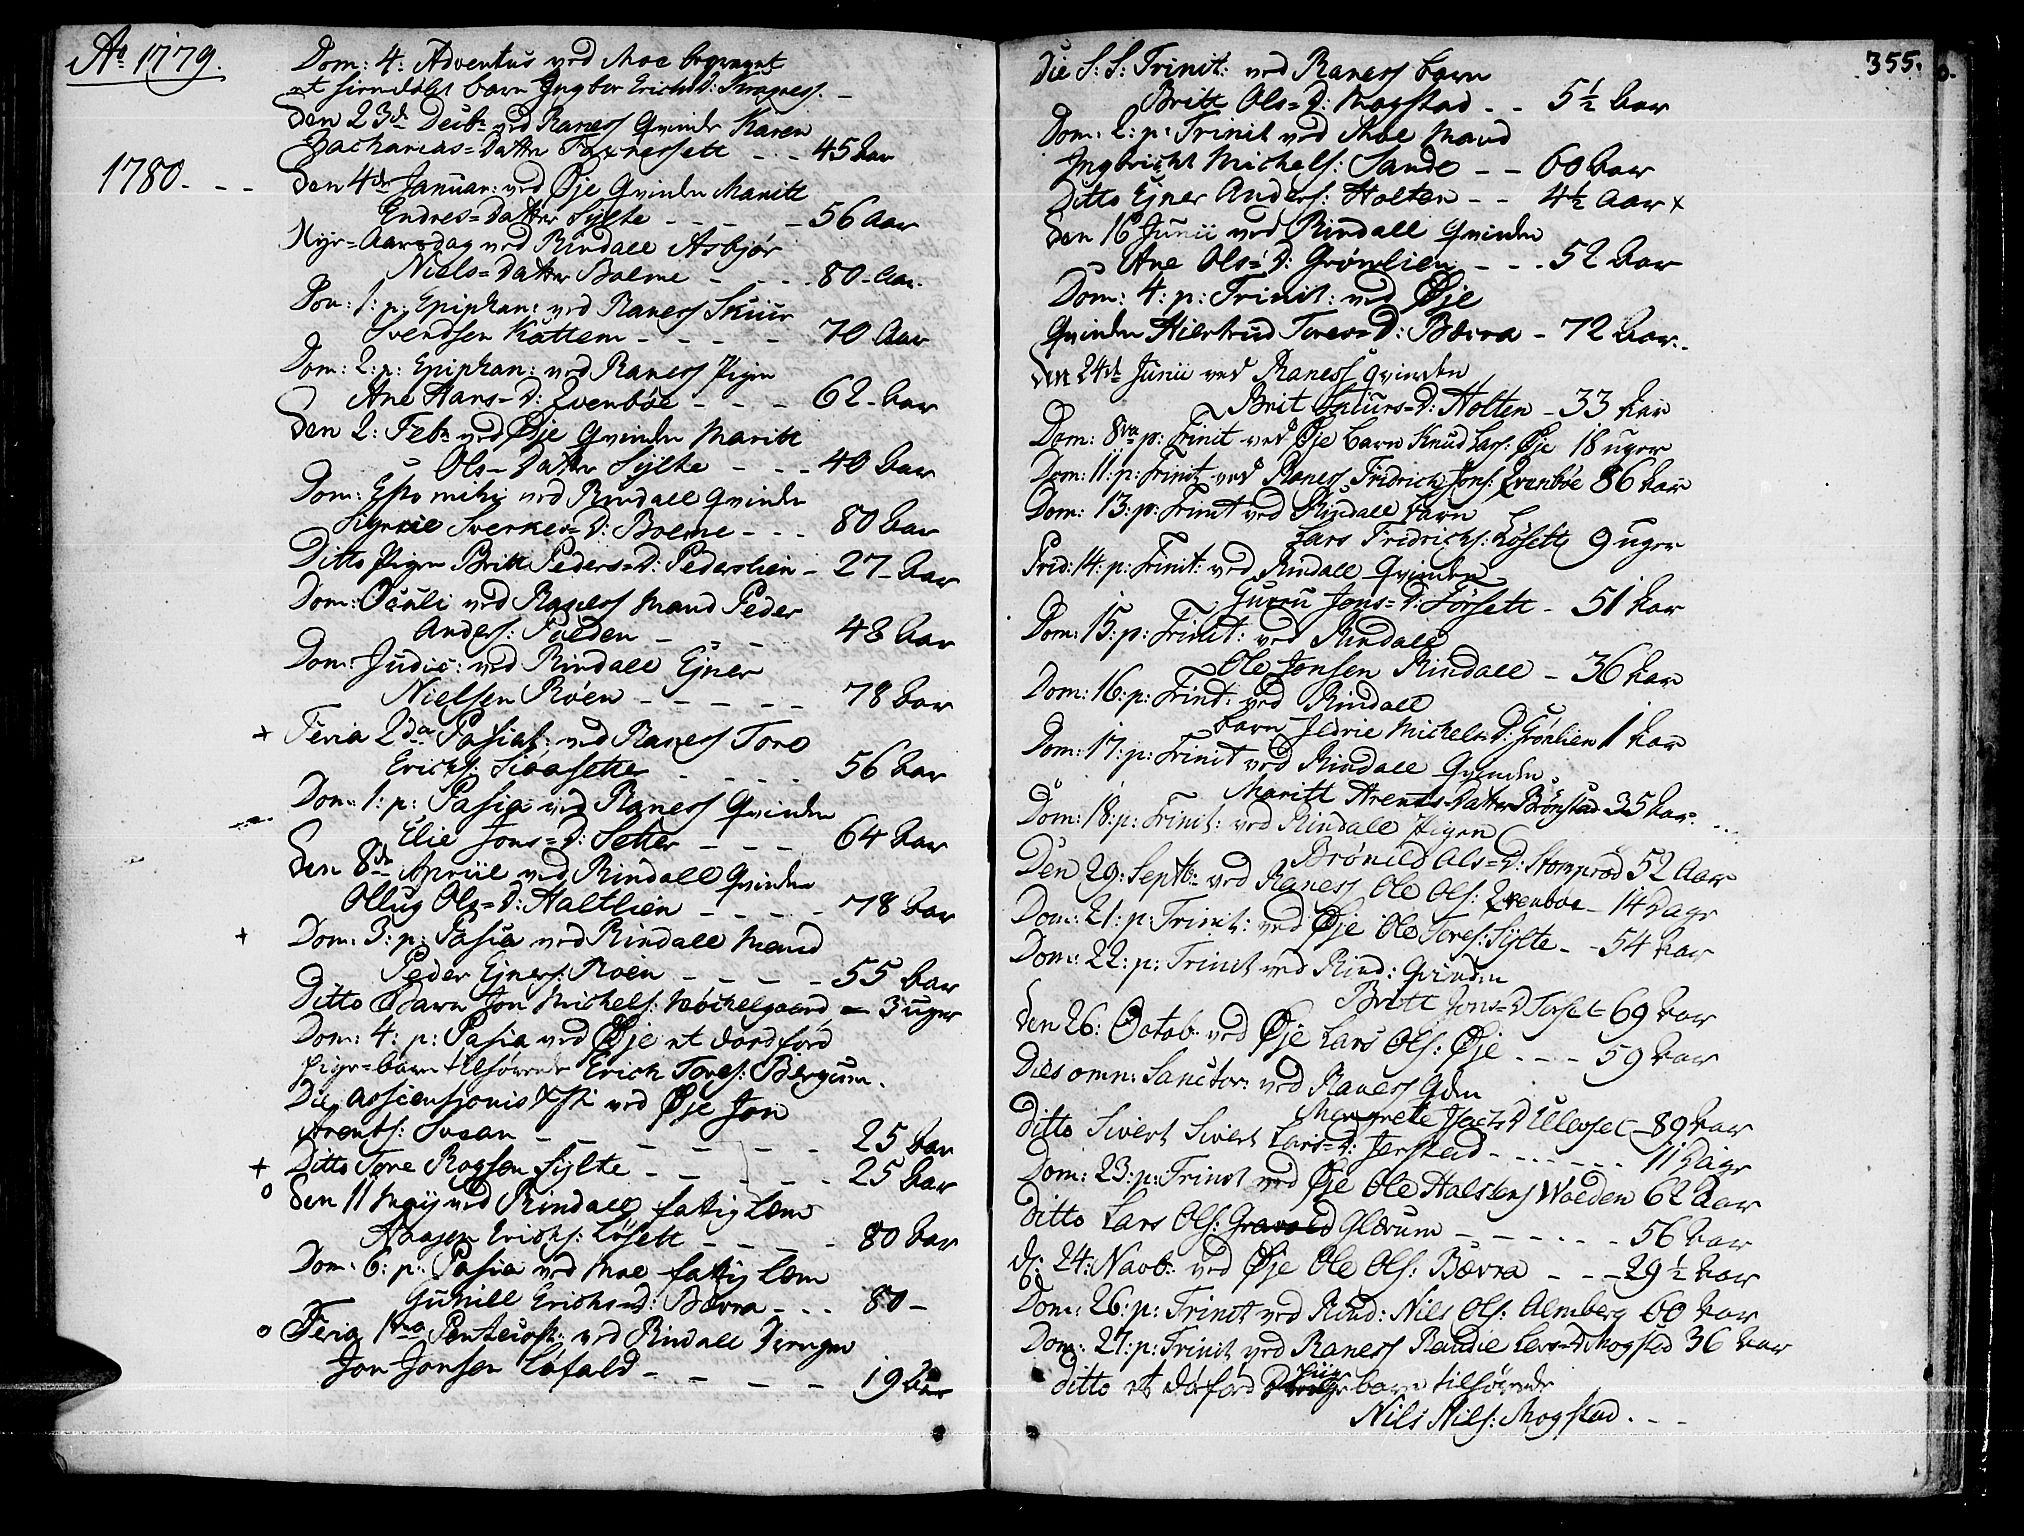 Ao 1779.
Dom: 4: Adventus ved Moe begravet
et hiemdøbt barn Ingebor Erichs D: Kragness. -
Den 23de Decbr ved Raness Qvinde Karen
Zacharias=Datter Foxnessett - - - 45 Aar
1780. - -
Den 4de Januar: ved Øje Qvinden Maritt
Endres=Datter Sylte - - - - 56 Aar
Nyr=Aarsdag ved Rindall Asbjør
Niels=Datter Bolme - - - - 80 Aar.
Dom: 1: p: Epiphan: ved Raness Skuur
Svendsen Kattem - - - - 70 Aar
Dom: 2: p: Epiphan: ved Raness Pigen
Ane Hans=D: Qvenbøe - - - 62 Aar
Den 2: Febr ved Øje Qvinden Maritt
Ols=Datter Sylte - - - 40 Aar
Dom: Esto mihi ved Rindall Qvinden
Sverkes=D: Bolme - - - 80 Aar
Ditto Pigen Britt Peders=D: Pederslien - 27 Aar
Dom: Oculi ved Raness Mand Peder
Anders: Polden - - - 48 Aar
Dom: Judic: ved Rindall Ejner
Nielssen Röen - - - - - 78 Aar
+ Feria 2da Pascat: ved Raness Tore
Erichs: Siaasetter - - - - 56 Aar
Dom: 1: p: Pascha ved Raness Qvinden
Elie Jons=D: Setter - - - 64 Aar
Den 8de Apriil ved Rindall Qvinden
Ollug Ols=D: Haltlien - - - - 78 Aar
+ Dom: 3: p: Pascha ved Rindall Mand
Peder Ejners: Röen - - - - 55 Aar
Ditto Barn Jon Michels: Møchelgaard - 3 uger
Dom: 4: p: Pascha ved Øje et dødfød
Pige=barn tilhørende Erich Tores: Bærgum.
Die Ascensionis Xsti ved Øje Jon
Arents: Svean - - - - - 25 Aar
+ Ditto Tore Rogsen Sylte - - - - - 25 Aar
o Den 11 Maij ved Rindall fattig Lem
Aagen Erichs: Løsett - - - - 80 Aar
Dom: 6: p: Pascha ved Moe fattig Lem
Gunill Erichs=D: Bævra - - - 80 -
o Feria 1ma Pentecost: ved Rindall Drengen
Jon Jonsen Løfald - - - - - 19 Aar
355.
Die S: S: Trinit: ved Raness barn
Britt Ols=D: Mogstad - - 5 1/2 Aar
Dom: 2: p: Trinit ved Moe Mand
Ingbricht Michels: Sande - - 60 Aar
Ditto Ejner Anders: Holten - - 4 1/2 Aar +
Den 16 Junii ved Rindall Qvinden
Ane Ols=D: Grønlien - - - 52 Aar
Dom: 4: p: Trinit: ved Øje
Qvinden Hiertrud Tores=D: Bævra - 72 Aar.
Den 24de Junii ved Raness Qvinden
Brit Skuurs=D: Holten - 33 Aar
Dom: 8va p: Trinit ved Øje barn Knud Lars: Øje 18 uger
Dom: 11: p: Trinit ved Raness Fridrich Jons: Qvenbøe 86 Aar
Dom: 13: p: Trinit ved Rindall barn
Lars Fridrichs: Løsett 9 uger
14: p: Trinit: ved Rindall Qvinden
Guru Jons=D: Førsett - 51 Aar
Dom: 15: p: Trinit: ved Rindall
Ole Jonsen Rindall - 36 Aar
Dom: 16: p: Trinit: ved Rindall
barn Jldrie Michels=D: Grønlien 1 Aar
Dom: 17: p: Trinit ved Rindall Qvinden
Maritt Arents=Datter Brønstad 35 Aar. - -
Dom: 18: p: Trinit: ved Rindall Pigen
Brönild Ols=D: Stomprød 52 Aar
Den 29: Septbr ved Raness Ole Ols: Qvenbøe - 14 Dage
Dom: 21: p: Trinit: ved Øje Ole Tores: Sylte - - 54 Aar
Dom: 22: p: Trinit ved Rind: Qvinden
Britt Jons=D Torset - 69 Aar
Den 26: Octob: ved Øje Lars Ols: Øje - - - - 59 Aar
Dies omn: Sanctor: ved Raness Qden
Margrete Isachs D Ullevset - 89 Aar
Ditto Sivert Sivert Lars=D: Jerstad - - - - - - - 11 Dage
Dom: 23: p: Trinit ved Øje Ole Halstens: Wolden 62 Aar
Ditto Lars Ols: Glærum - - - - - - - 56 Aar
d: 24: Novb: ved Øje Ole Ols: Bævra - - - 29 1/2 Aar
Dom: 26: p: Trinit ved Rind: Nils Ols: Almberg 60 Aar
Dom: 27: p: Trinit ved Raness Randie Lars=D Mogstad 36 Aar
Ditto et dødfød Pige barn tilhørende
Nils Nils: Mogstad. - - -